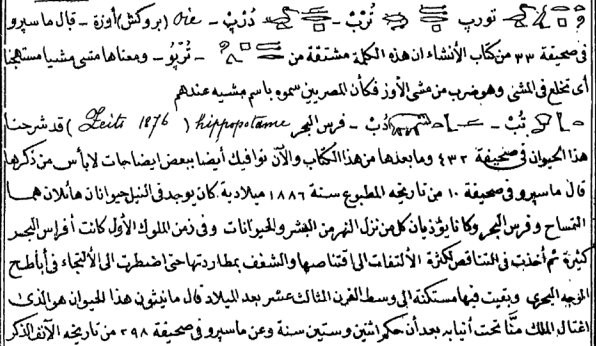 تورپ - تُرْپْ - دُرْپْ - Oie (بروكش) أوزة - قال ماسپرو
فى صحيفة ٣٣ من كتاب الأنشاء ان هذه الكلمة مشتقة من - تُرْپُو - ومعناها مشى مشيا مستهجنا
أى تخلع فى المشى وهو ضرب من مشى الأوز فكأن المصريين سموه باسم مشيه عندهم
تُبْ - دُبْ - فرس البحر hippopotame (Zeits 1876) قد شرحنا
هذا الحيوان فى صحيفة ٤٣٢ وما بعدها من هذا الكتاب والآن نوافيك أيضا ببعض ايضاحات لابأس من ذكرها
قال ماسپرو فى صحيفة ١٠ من تاريخه المطبوع سنة ١٨٨٦ ميلادية كان يوجد فى النيل حيوانان هائلان هما
التمساح وفرس البحر وكانا يؤذيان كل من نزل النهر من البشر والحيوانات وفى زمن الملوك الأول كانت أفراس البحر
كثيرة ثم أخذت فى التناقص لكثرة الألتفات الى اقتناصها والشغف بمطاردتها حتى اضطرت الى الألتجاء فى أباطح
الوجه البحرى وبقيت فيها مستكنة الى وسط القرن الثالث عشر بعد الميلاد قال مانيثون هذا الحيوان هو الذى
اغتال الملك منَّا تحت أنيابه بعد أن حكم اثنين وستين سنة وعن ماسپرو فى صحيفة ٢٩٨ من تاريخه الآنف الذكر